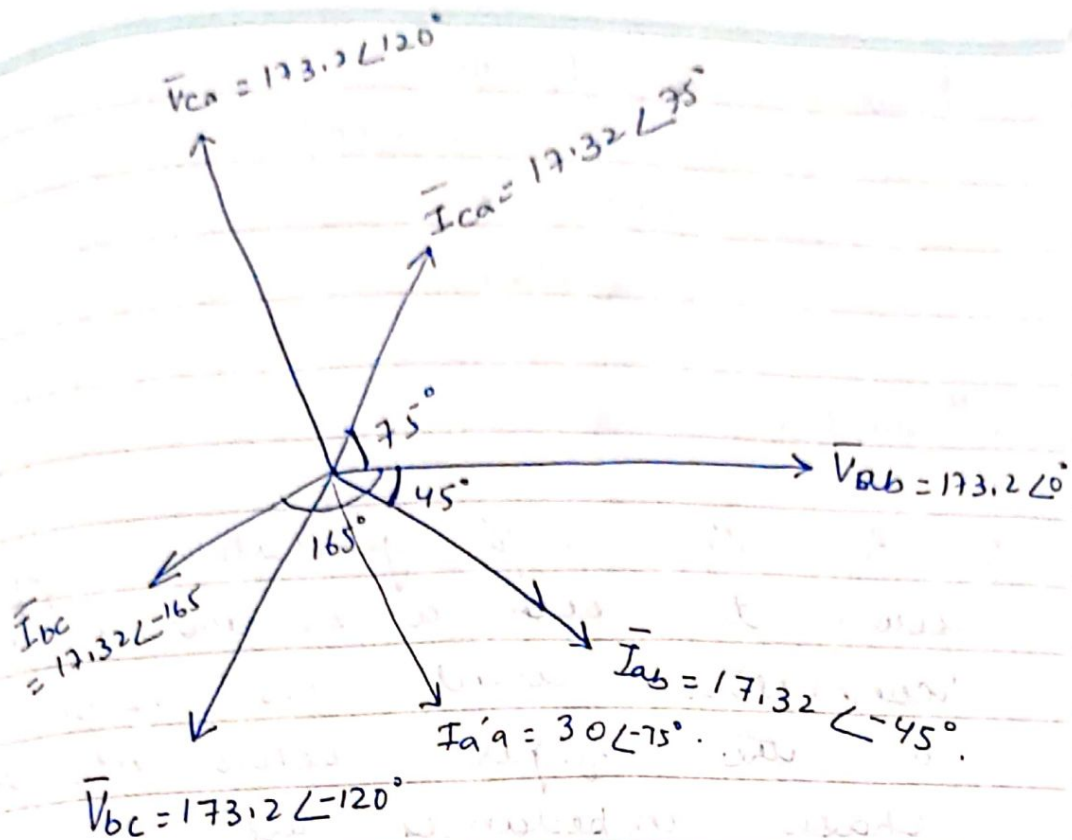 V̄ca = 173.2 ∠120°
Īca = 17.32 ∠75°
75°
V̄ab = 173.2 ∠0°
45°
165°
Ībc
= 17.32 ∠-165
Īab = 17.32 ∠-45°.
Ia'a = 30 ∠-75°.
V̄bc = 173.2 ∠-120°